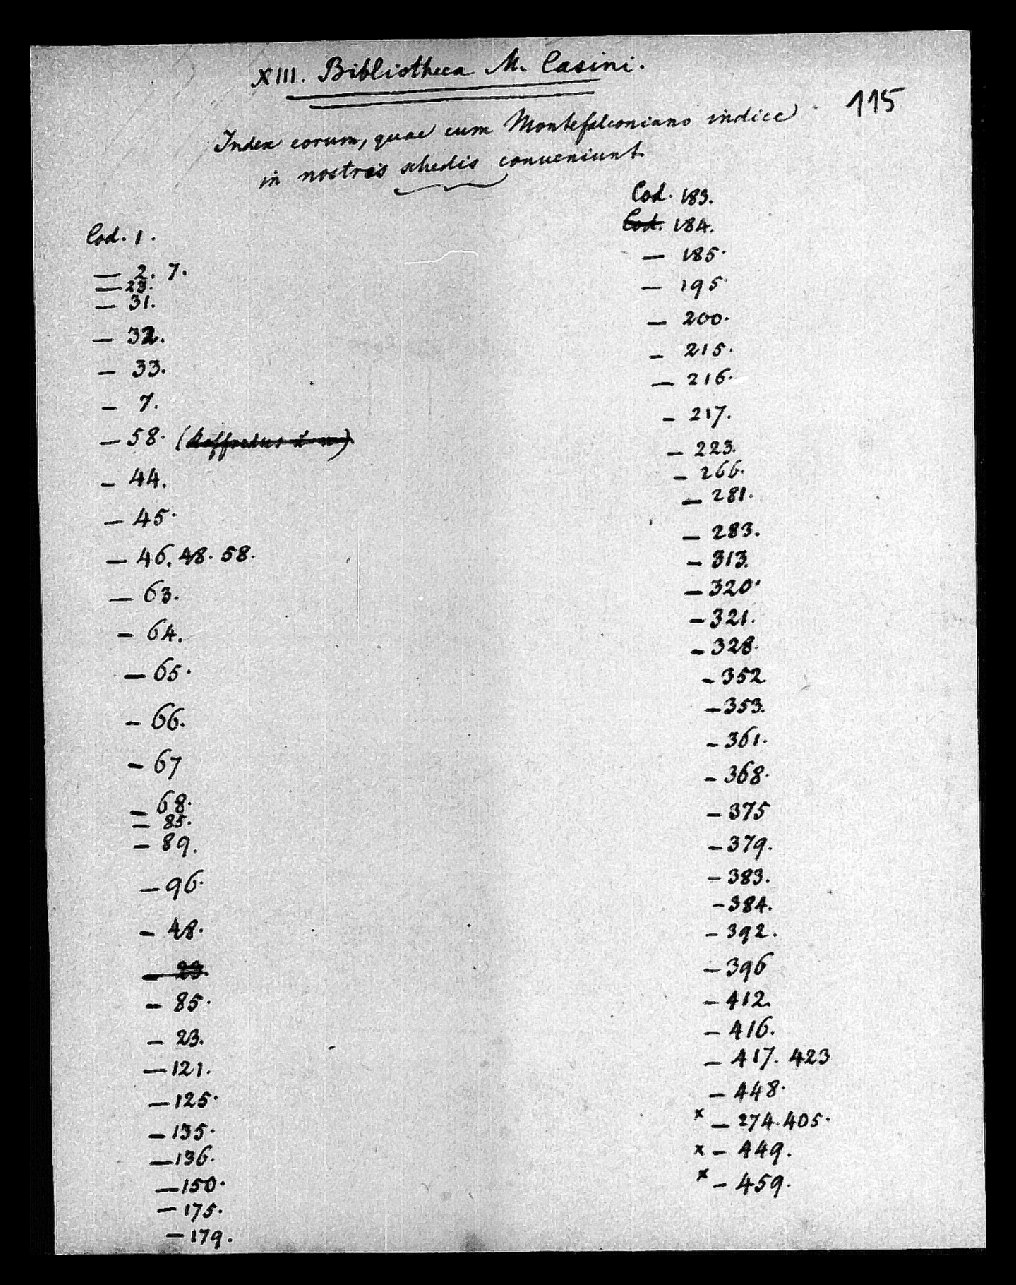 XIII. Bibliotheca M. Casini.
115
Index eorum, quae cum Montefalconiano indice
in nostris schedis conveniunt.
Cod. 1.
— 2. 7.
— 23.
— 31.
— 32.
— 33.
— 7.
— 58.
— 44.
— 45.
— 46. 48. 58.
— 63.
— 64.
— 65.
— 66.
— 67
— 68.
— 85.
— 89.
— 96.
— 48.
— 23.
— 85.
— 23.
— 121.
— 125.
— 135.
— 136.
— 150.
— 175.
— 179.
Cod. 183.
Cod. 184.
— 185.
— 195
— 200.
— 215.
— 216.
— 217.
— 223.
— 266.
— 281.
— 283.
— 313.
— 320.
— 321.
— 328.
— 352
— 353.
— 361.
— 368.
— 375
— 379.
— 383.
— 384.
— 392.
— 396
— 412.
— 416.
— 417. 423
— 448.
x — 274. 405.
x — 449.
x — 459.